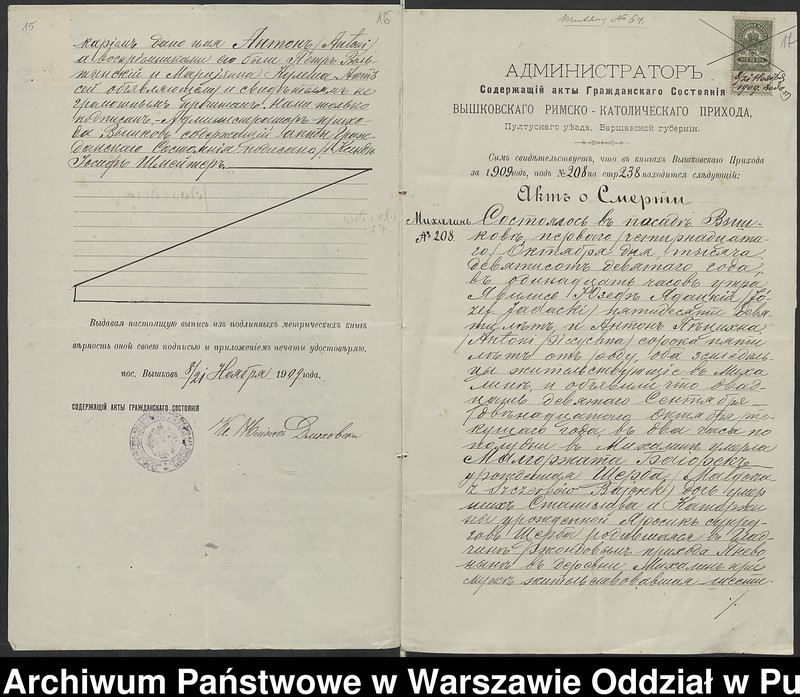 15
16
каріемъ дано имя Антонъ /Antoni/
а воспріемниками его были Петръ Воль-
тынскій и Маріанна Кулеша. Актъ
сей объявляющему и свидѣтелямъ не-
грамотнымъ прочитанъ. Нами только
подписанъ. Администраторъ прихо-
да Вышковъ содержащій Акты Граж-
данскаго Состоянія подписано /-/ Ксендзъ
Іосифъ Шмейтеръ.
Выдавая настоящую выпись изъ подлинныхъ метрическихъ книгъ
вѣрность оной своею подписью и приложеніемъ печати удостовѣряю.
пос. Вышковъ 8/21 Ноября 1909 года.
СОДЕРЖАЩІЙ АКТЫ ГРАЖДАНСКАГО СОСТОЯНІЯ
№ 64.
17
8/21 Ноября
1909 года
АДМИНИСТРАТОРЪ
Содержащій акты Гражданскаго Состоянія
ВЫШКОВСКАГО РИМСКО-КАТОЛИЧЕСКАГО ПРИХОДА,
Пултускаго уѣзда, Варшавской губерніи.
Симъ свидѣтельствуетъ, что въ книгахъ Вышковскаго Прихода
за 1909 годъ, подъ № 208 на стр 238 находится слѣдующій:
Актъ о Смерти
Михалинъ
№ 208.
Состоялось въ посадѣ Выш-
ковѣ, перваго /четырнадцата-
го/ Октября дня, тысяча
девятисотъ девятаго года,
въ одинадцать часовъ утра.
Явились Юзефъ Ядацкій /Jó-
zef Jadacki/ пятидесяти девя-
ти лѣтъ, и Антонъ Пѣцихна
/Antoni Piecychna/ сорока пяти
лѣтъ отъ роду, оба земледѣль-
цы жительствующіе въ Миха-
линѣ, и объявили что двад-
цать девятаго Сентября
/двѣнадцатаго Октября/ те-
кущаго года, въ два часа по
полудни въ Михалинѣ умерла
Малгоржата Багорскъ
урожденная Щерба, /Małgorza-
ta z Szczerbów Bagorska/ дочь умер-
шихъ Станислава и Катаржи-
ны урожденной Ярсикъ супру-
говъ Щерба родившаяся въ
прихода
въ деревни Михалинъ при
мужѣ жительствовавшая шести-
./.
Archiwum Państwowe w Warszawie Oddział w Pu